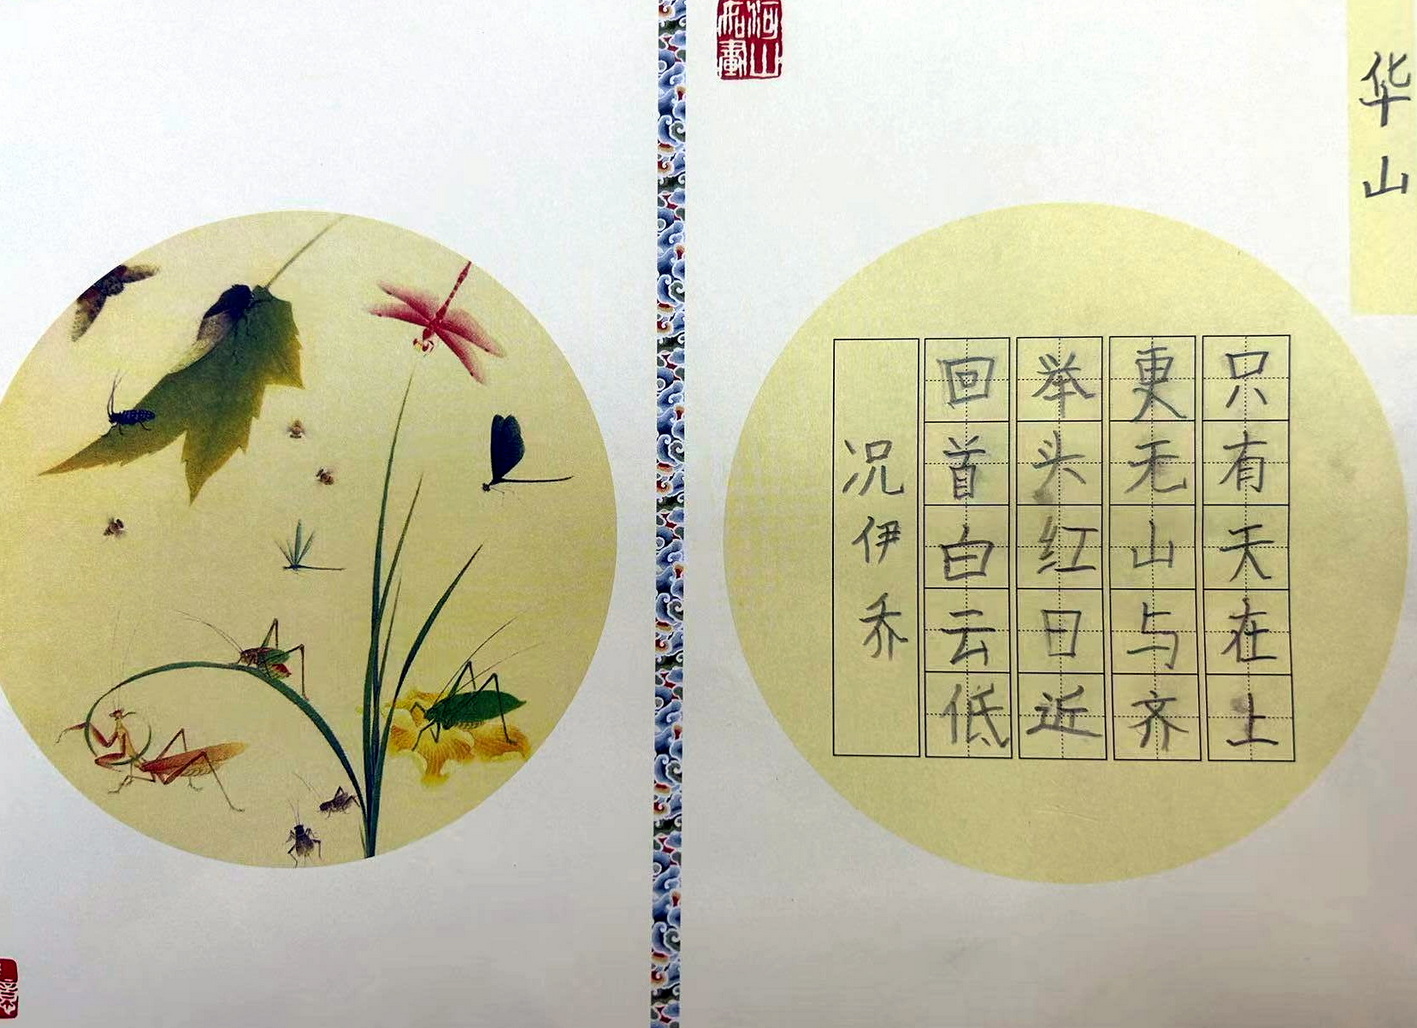 华山
只有天在上
更无山与齐
举头红日近
回首白云低
况伊乔
河山
如畫